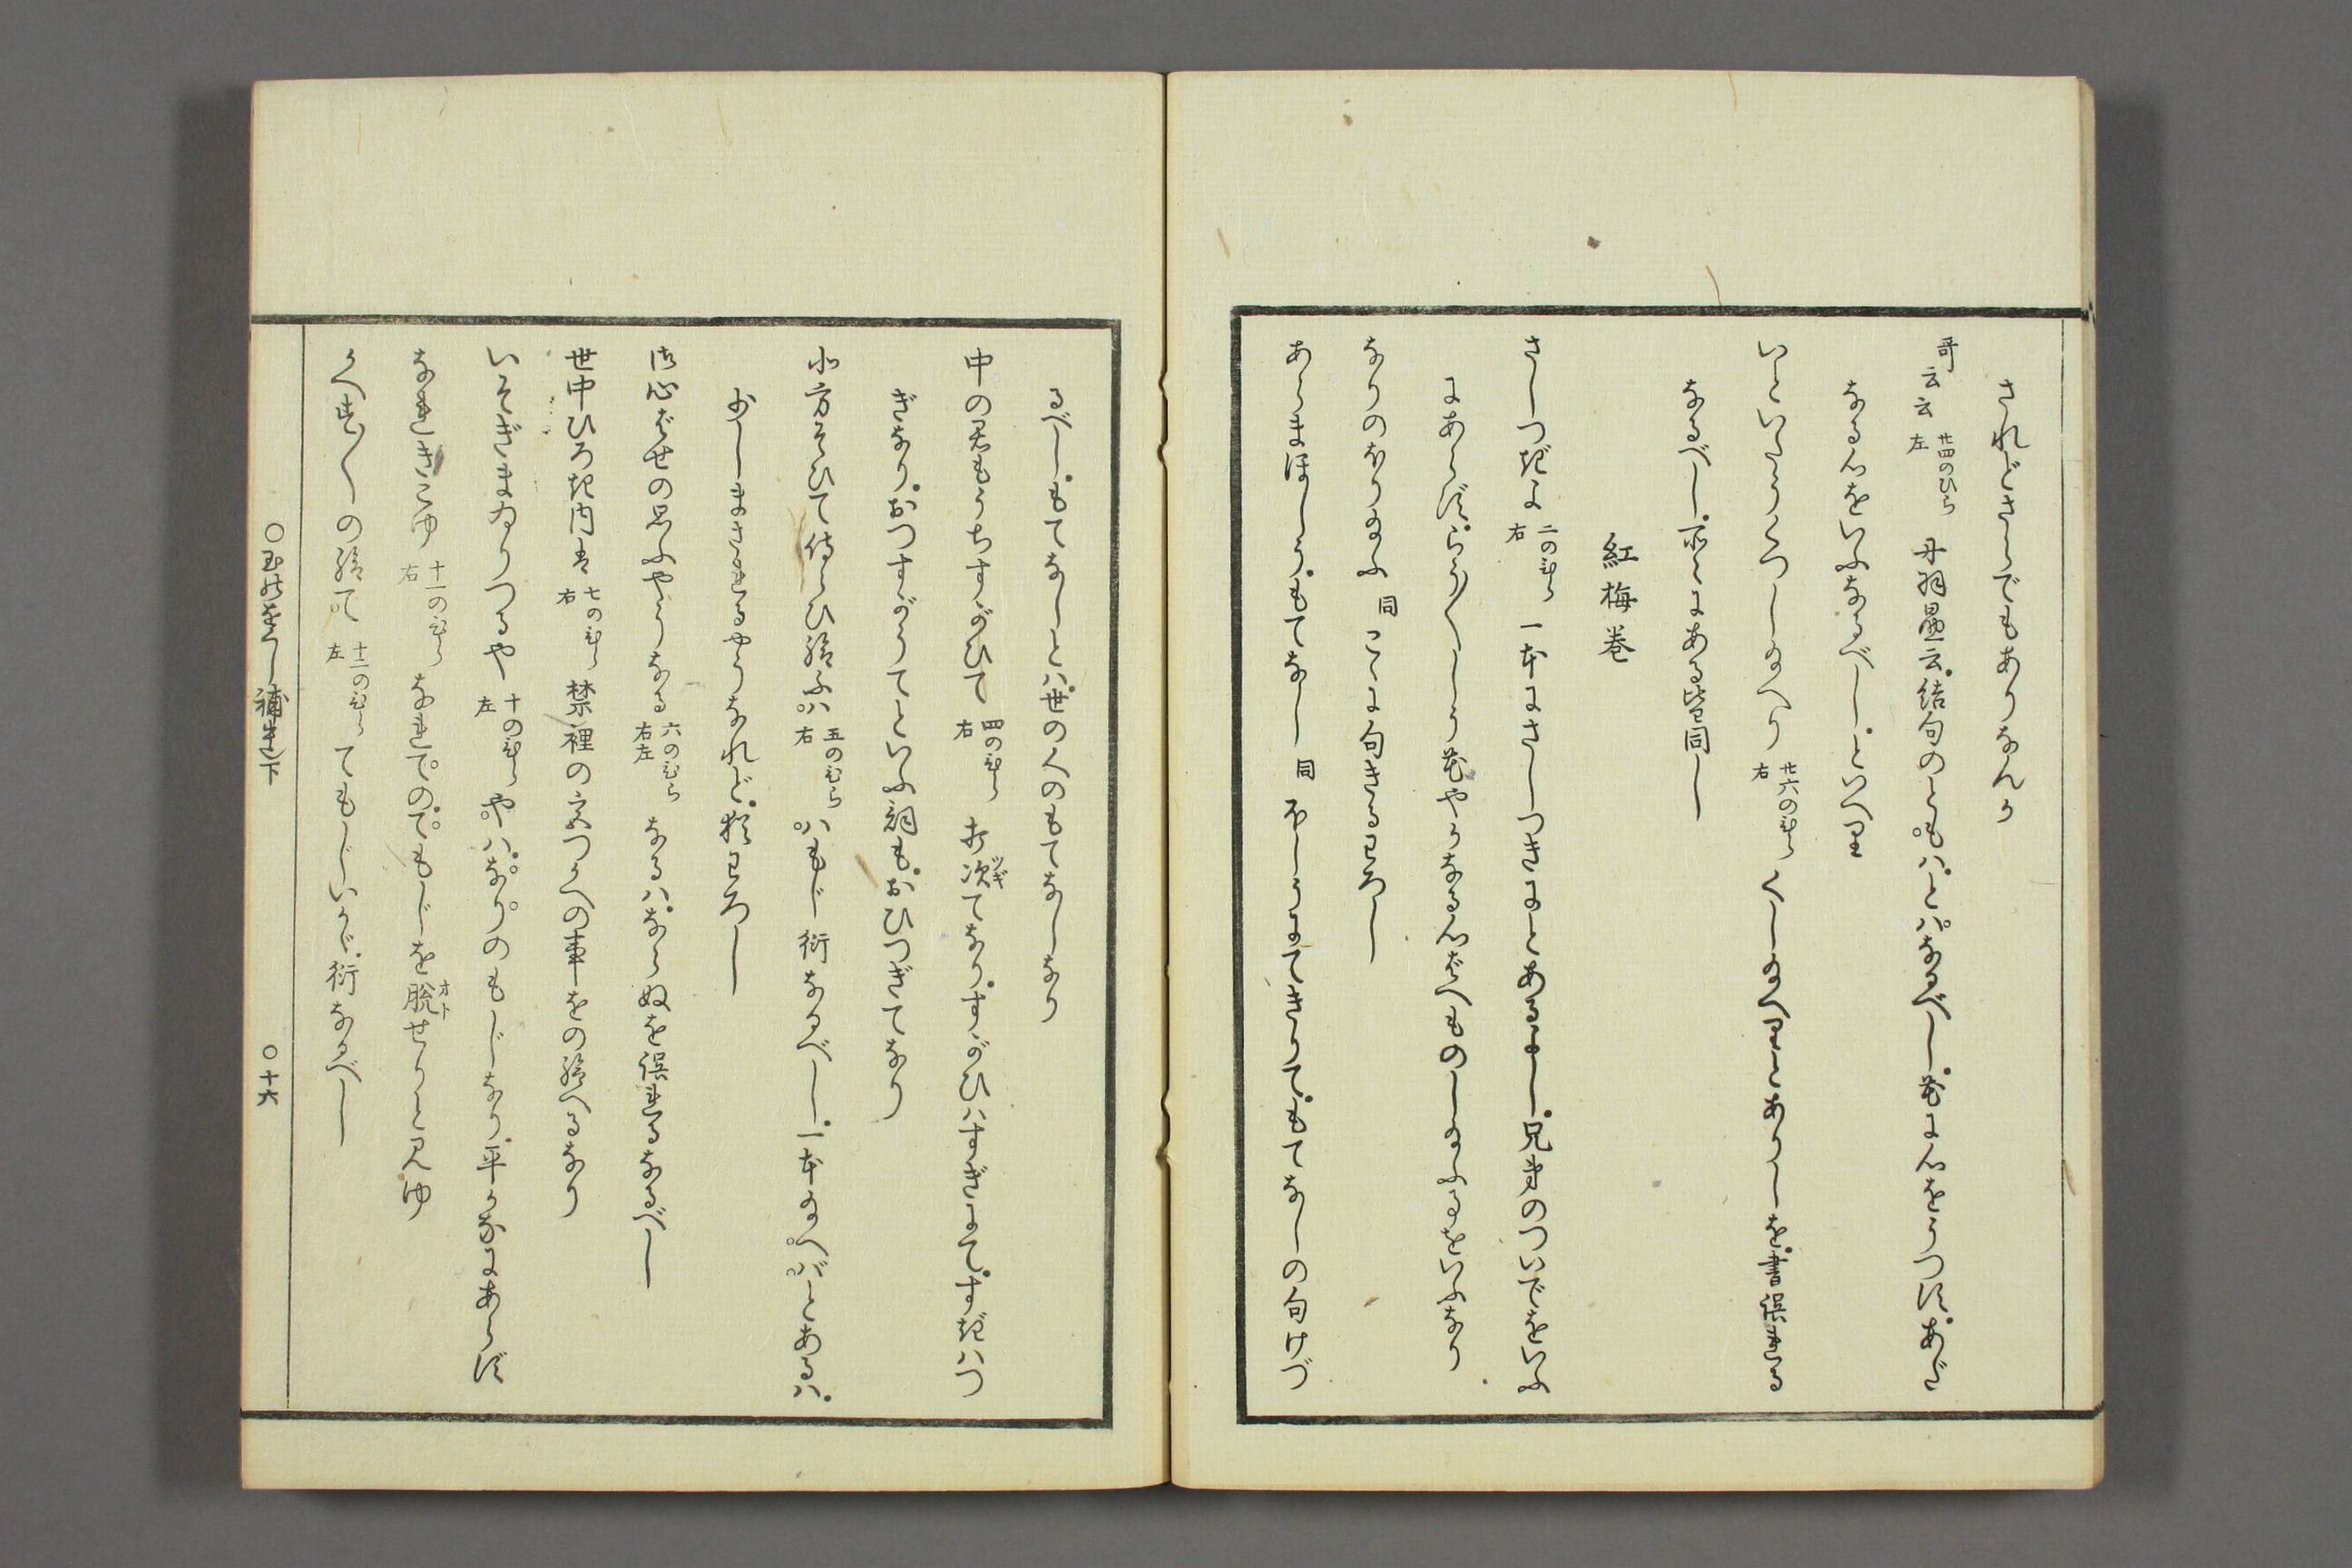 されどさてもありなんか
哥云云 廿四のひら左 丹羽勗云結句のともハとハなるべし花に心をうつすあだ
なる心をいふなるべしといへり
いといたうくつしたまへり 廿六のひら右 くしたまへりとありしを書誤れる
なるべし所々にある皆同し
紅梅巻
さしつぎよ 二のひら右 一本にさしつきにとあるよし兄弟のついでをいふ
にあらずらう〳〵しう花やかなる心ばへものしたまふるをいふなり
なりのぼりたまふ 同 こゝに句きるわろし
あらまほしうもてなし 同 ほしうにてきりてもてなしの句けづ
るべしもてなしとハ世の人のもてなしなり
中の君もうちすがひて 四のひら右 打次てなりすがひハすぎにてすぎハつ
ぎなりおつすがうてといふ詞もおひつぎてなり
北方そひて侍らひ給ふハ 五のひら右 ハもじ衍なるべし一本たまへばとあるハ
少しまされるやうなれど猶わろし
御心ばせの思ふやうなる 六のひら右左 なるハならぬを誤れるなるべし
世中ひろき内は 七のひら右 禁裡の交つかへの事をの給へるなり
いそぎまゐりつるや 十のひら左 やハなりのもじなり平かなにあらず
なれきこゆ 十一のひら右 なれでのでもじを脱せりと見ゆ
かへす〳〵の給て 十二のひら左 てもじいかゞ衍なるべし
○玉の小くし補遺下 ○十六